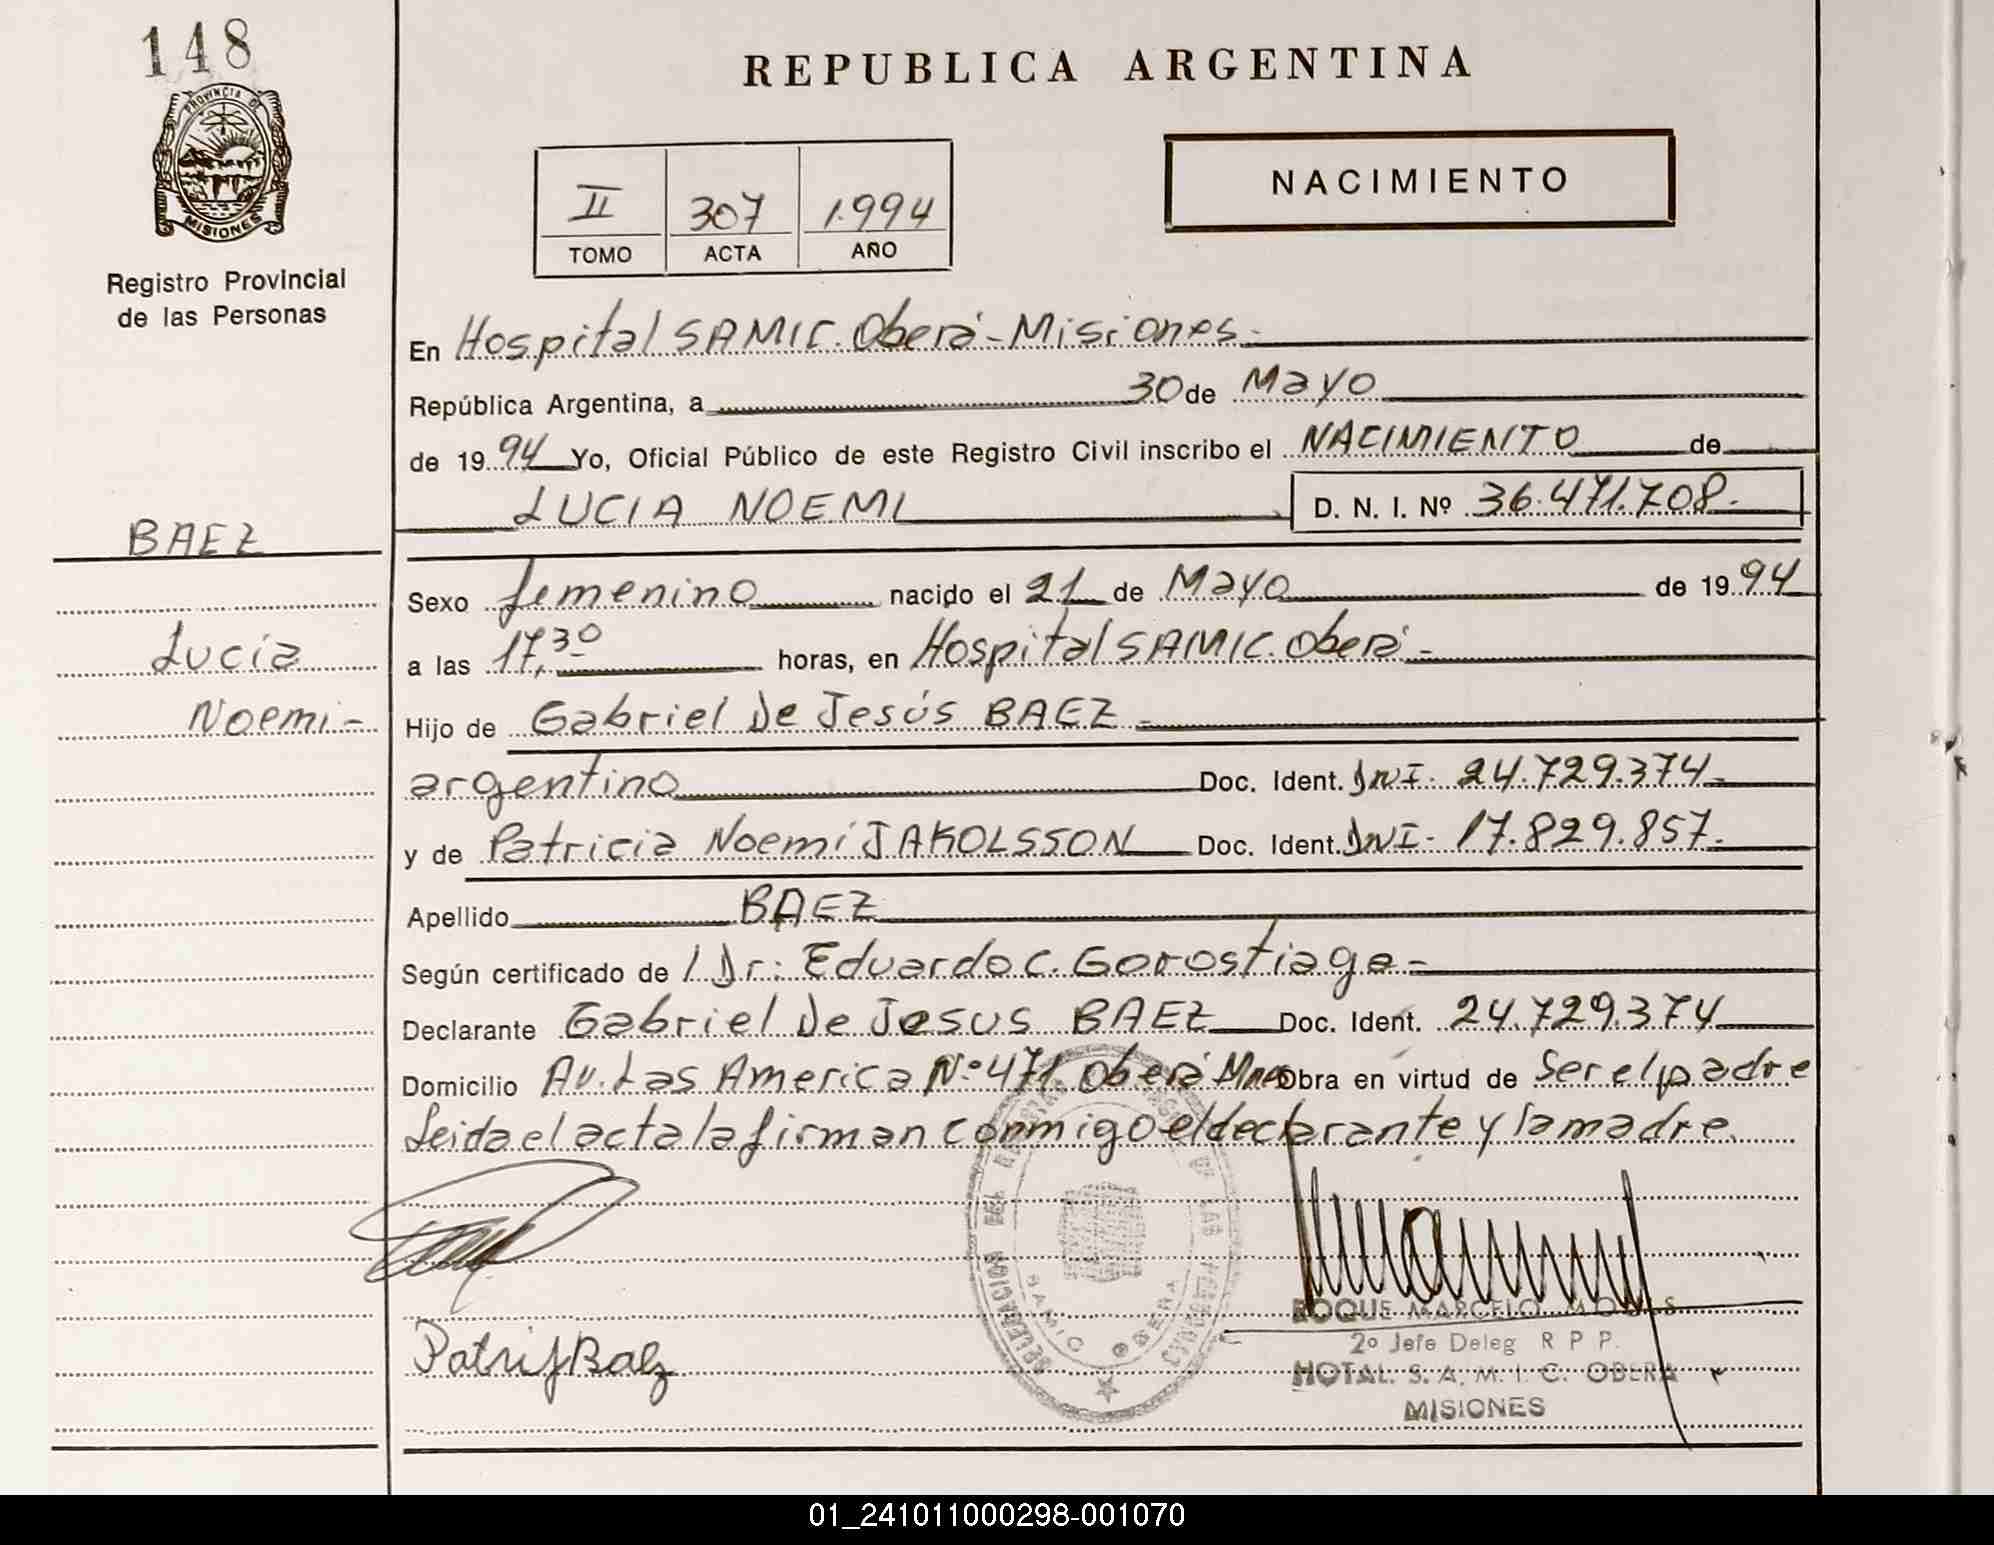 148
PROVINCIA DE
MISIONES
Registro Provincial
de las Personas
BAEZ
Lucia
Noemi-
REPUBLICA ARGENTINA
II 307 1.994
TOMO ACTA AÑO
NACIMIENTO
En Hospital SAMIC. Oberá-Misiones-
República Argentina, a 30 de Mayo
de 1994 Yo, Oficial Público de este Registro Civil inscribo el NACIMIENTO de
LUCIA NOEMI D. N. I. Nº 36.471.708-
Sexo femenino nacido el 21 de Mayo de 1994
a las 17,30 horas, en Hospital SAMIC. Oberá-
Hijo de Gabriel De Jesús BAEZ-
argentino Doc. Ident. DNI- 24.729.374-
y de Patricia Noemí JAKOLSSON Doc. Ident. DNI- 17.829.857-
Apellido BAEZ
Según certificado de / Dr: Eduardo C. Gorostiaga-
Declarante Gabriel De Jesus BAEZ Doc. Ident. 24.729.374
Domicilio Av. Las America Nº 471 Oberá Mnes Obra en virtud de Ser el padre
Leida el acta la firman conmigo el declarante y la madre
DELEGACION DEL REGISTRO DE LAS PERSONAS
SAMIC OBERA
ROQUE MARCELO
2º Jefe Deleg R P P.
HOTAL. S. A. M. I. C. OBERA
MISIONES
01_241011000298-001070